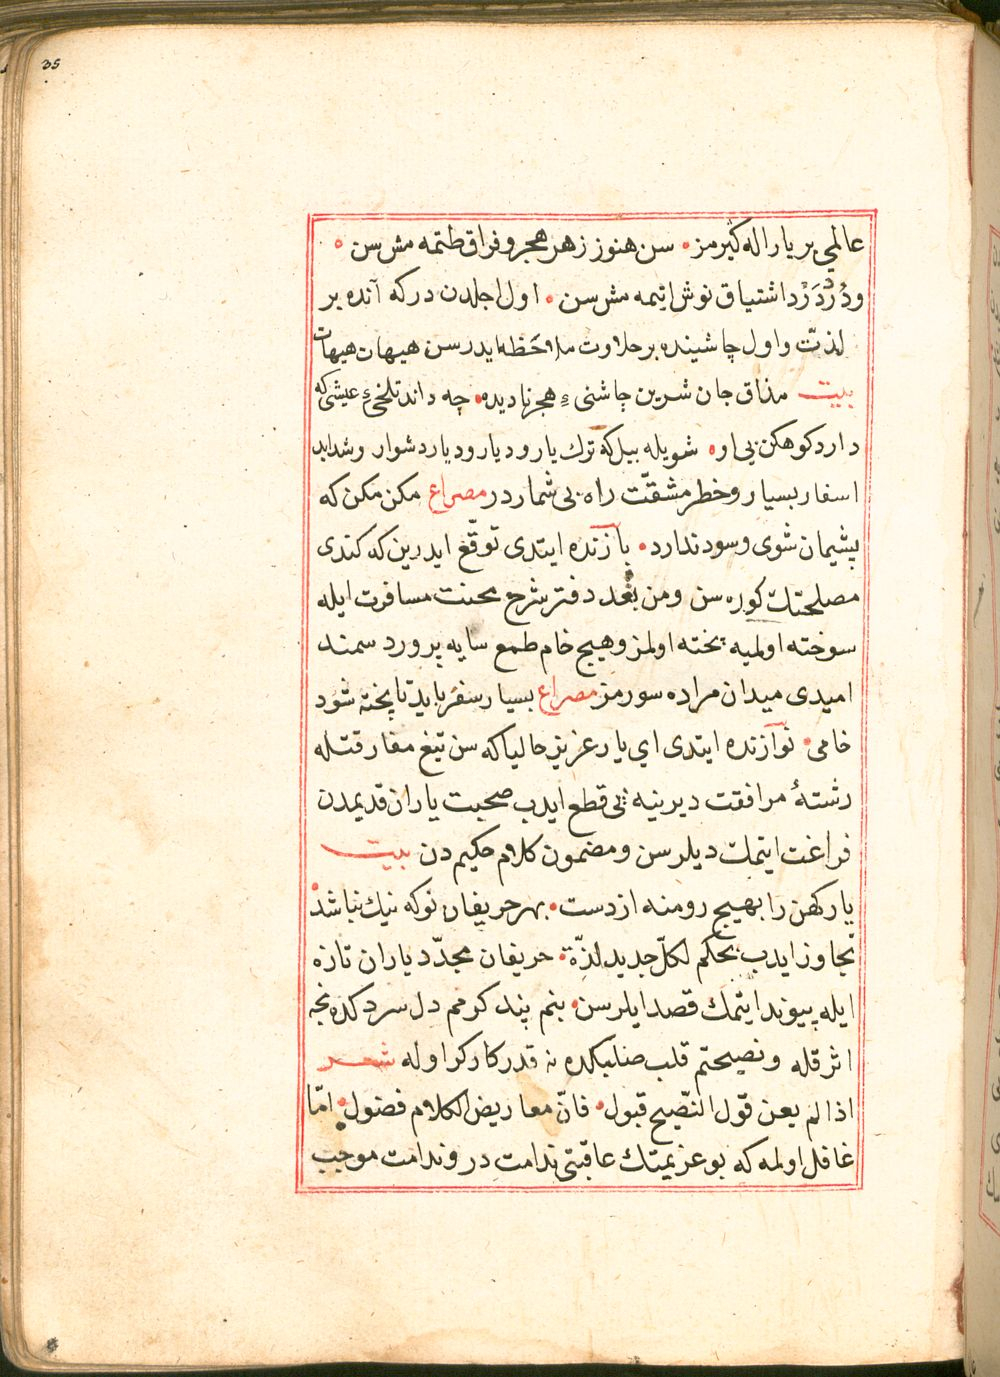 35
عالمي بر يار اله كيرمز • سن هنوز زهر هجر و فراق طتمه مش سن •
ودُرْدِ دَرْدِ اشتياق نوش ايتمه مش سن • اول اجلدن دركه آنده بر
لذتّ و اول چاشينده بر حلاوت ملاحَظه ايدرسن هيهات هيهات
بيت مذاق جان شرين چاشنیء هجر ناديده • چه داند تلخیء عيشی كه
دارد كوهكن بی او • شويله بيل كه ترك يار و ديار و ديار دشوار و شدايد
اسفار بسيار و خطر مشقّت راه بی شماردر مصراع مكن مكن كه
پشيمان شوی و سود ندارد • بازنده ايتدی توقّع ايدرين كه كندی
مصلحتك كوره سن و من بَعْد دفتر شرح محنت مسافرت ايله
سوخته اولميه پخته اولمز و هيچ خام طمع سايه پرورد سمند
اميدی ميدان مراده سورمز مصراع بسيار سفر بايد تا پخته شود
خامی • نوآزنده ايتدی ای يار عزيز حاليا كه سن تيغ مفارقتله
رشتهٔ مرافقت ديرينه يی قطع ايدب صحبت ياران قديمدن
فراغت ايتمك ديلرسن و مضمون كلام حكيم دن بيت
يار كهن را بهيچ رو منه از دست • بهر حريفان نو كه نيك نباشد •
تجاوز ايدب بحكم لكلّ جديد لذّة • حريفان مجدّد ياران تازه
ايله پيوند ايتمك قصد ايلرسن • بنم پند كرمم دل سردكده نجه
اثر قله و نصيحتم قلب صلبكده نه قدر كاركر اوله شعر
اذا لم يعن قول النّصيح قبول • فانّ معاريض الكلام فضول • امّا
غافل اولمه كه بو عزيمتك عاقبتی ندامت در و ندامت موجب